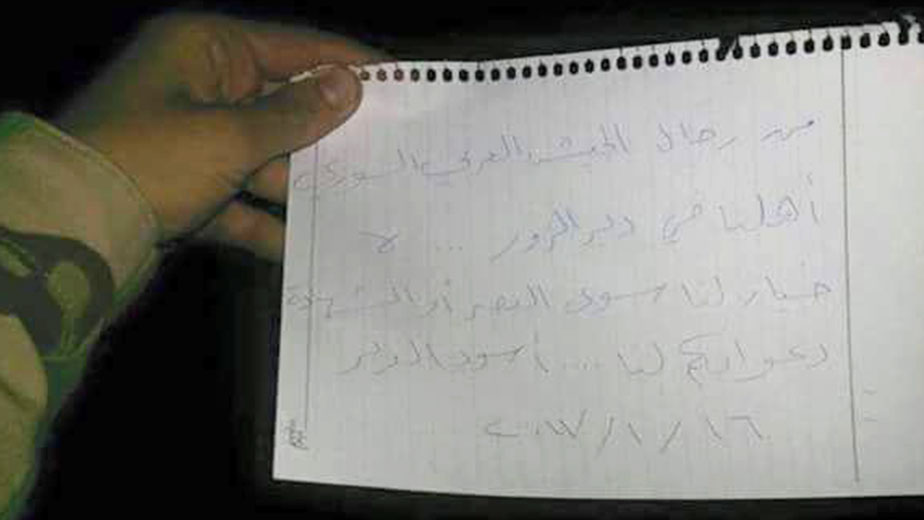 من رجال الجيش العربي السوري
أهلنا في دير الزور ... لا
خيار لنا سوى النصر أو الشهادة
دعواتكم لنا ... أسود الدير
١٦ / ١ / ٢٠١٧